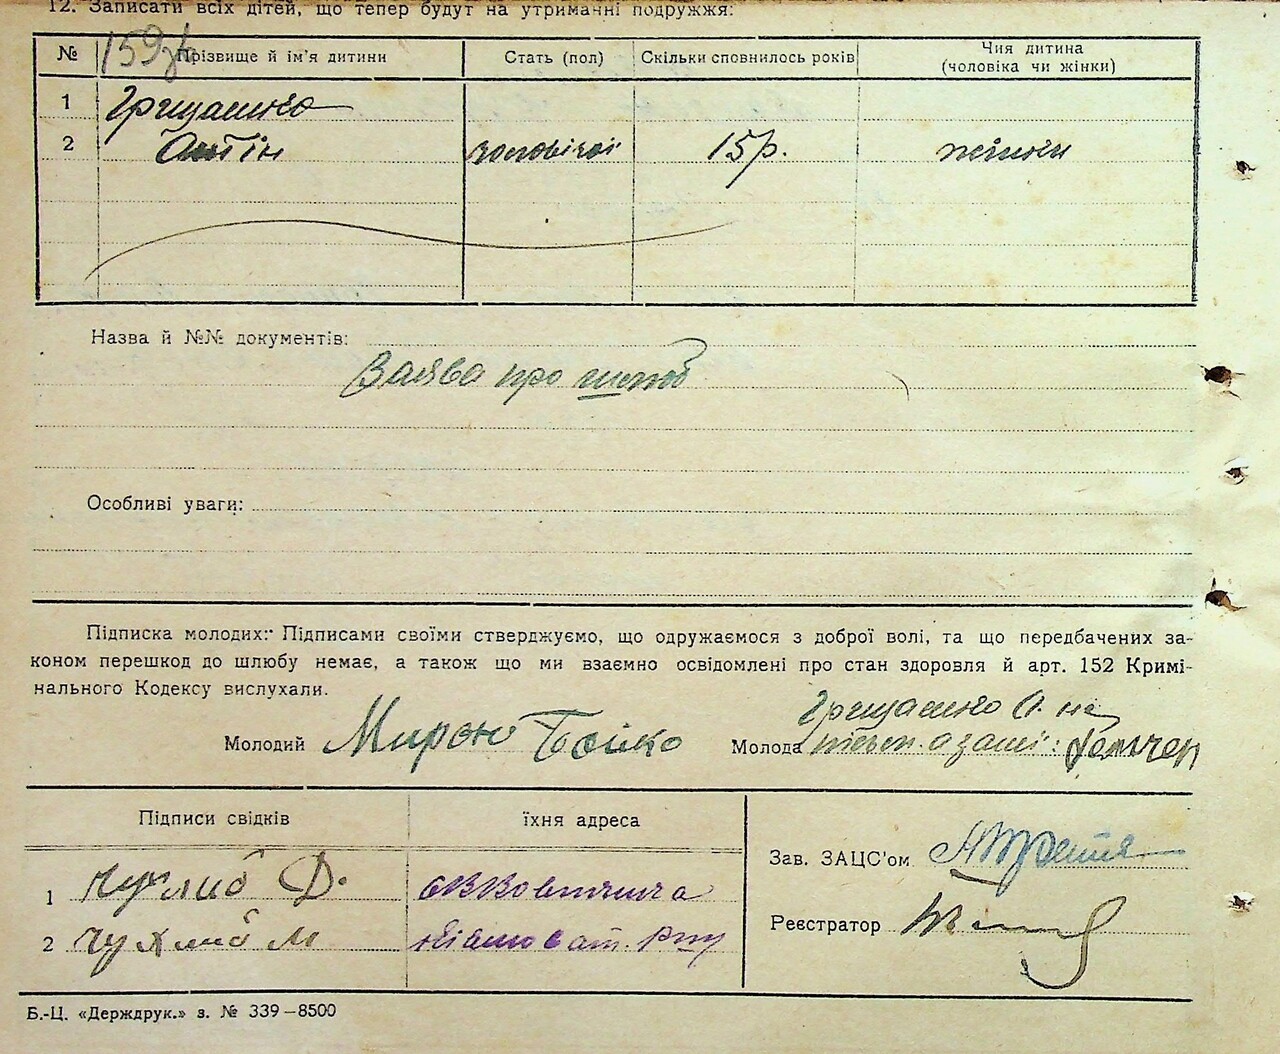 12. Записати всіх дітей, що тепер будут на утриманні подружжя:
159зв
№ Прізвище й ім'я дитини Стать (пол) Скільки сповнилось років Чия дитина (чоловіка чи жінки)
1 Грищенко
2 Антін чоловічої 15р. жінки
Назва й №№ документів:
Заява про шлюб
Особливі уваги:
Підписка молодих: Підписами своїми стверджуємо, що одружаємося з доброї волі, та що передбачених за-
коном перешкод до шлюбу немає, а також що ми взаємно освідомлені про стан здоровля й арт. 152 Кримі-
нального Кодексу вислухали.
Молодий Мирон Бойко Молода Грищенко А. не
Підписи свідків їхня адреса
1 Д.
2 Чухлиб М
Зав. ЗАЦС'ом
Реєстратор
Б.-Ц. «Держдрук.» з. № 339–8500